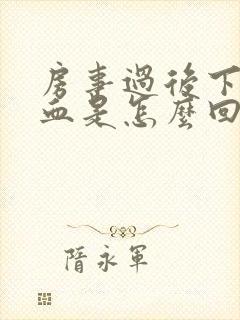 房事過後下
血是怎麼回
隋永軍